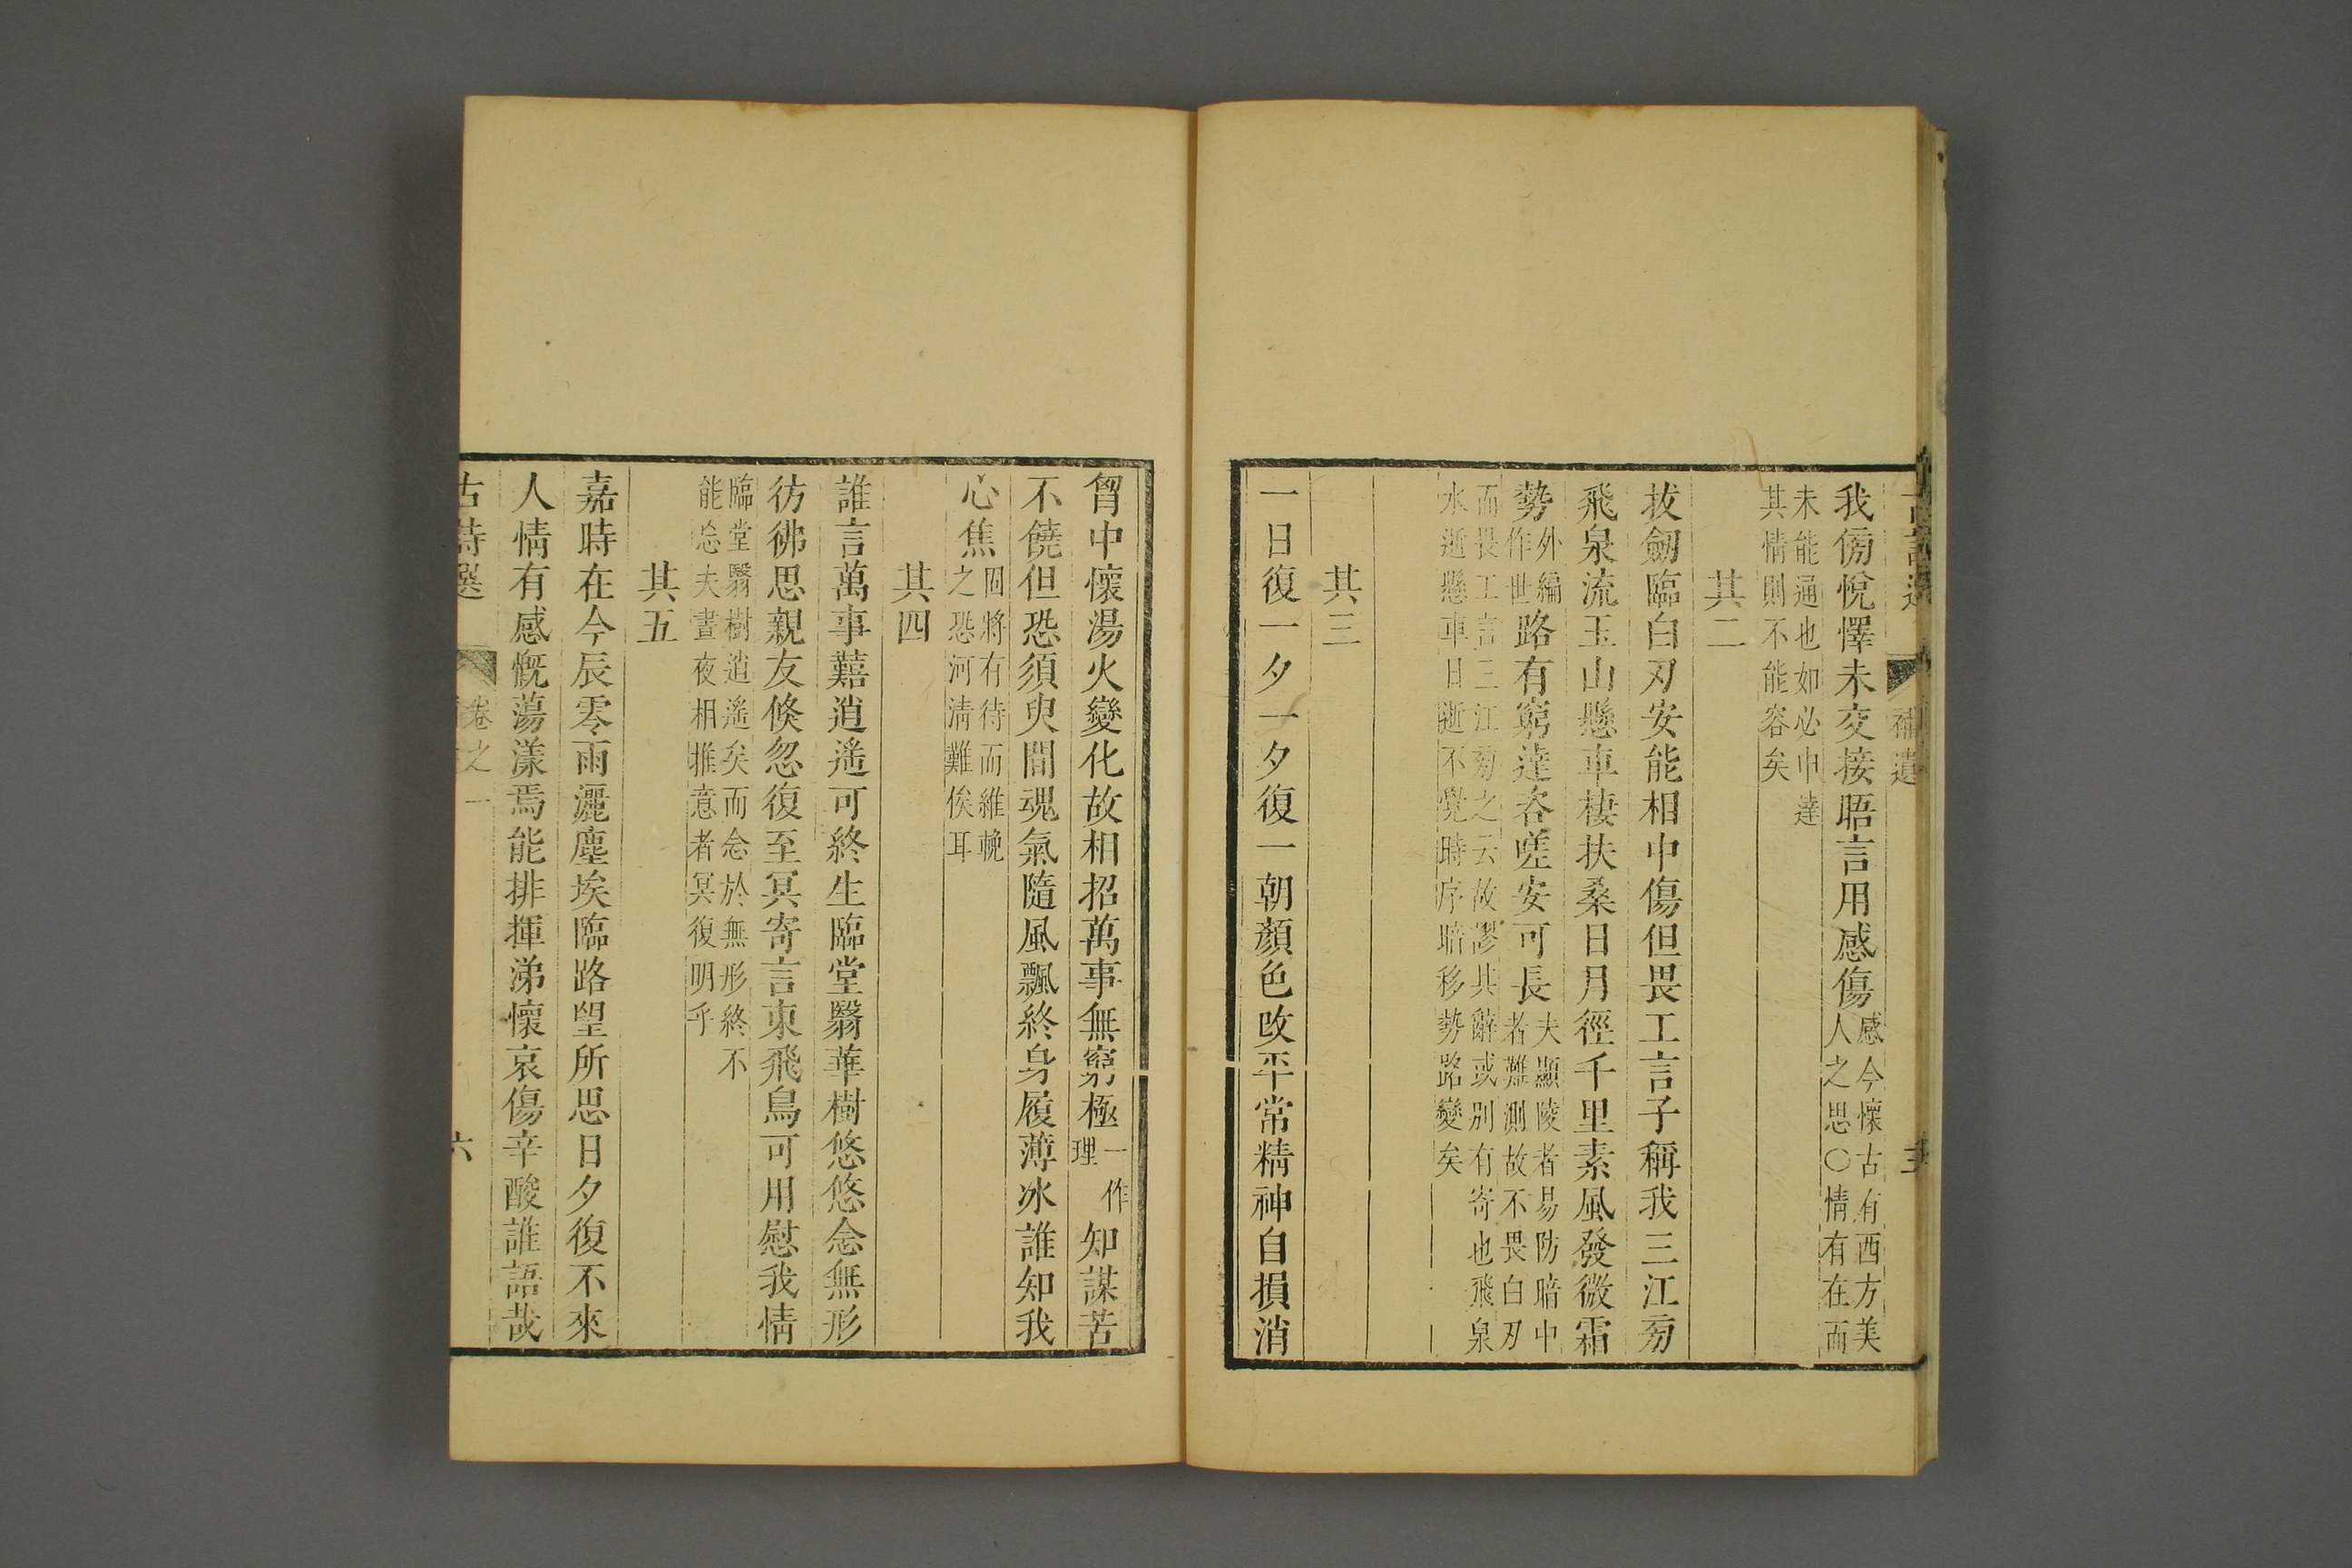 補遺
我傍悅懌未交接晤言用感傷感今懷古有西方美人之思〇情有在而
未能通也如必申達其情則不能容矣
其二
拔劒臨白刃安能相中傷但畏工言子稱我三江旁
飛泉流玉山懸車棲扶桑日月徑千里素風發微霜
勢外編作世路有窮達咨嗟安可長夫顯陵者易防暗中者難測故不畏白刃
而畏工言三江旁之云故謬其辭或别有寄也飛泉水逝懸車日逝不覺時序暗移勢路變矣
其三
一日復一夕一夕復一朝顏色改平常精神自損消
胷中懷湯火變化故相招萬事無窮極一作理知謀苦
不饒但恐須臾間魂氣隨風飄終身履薄冰誰知我
心焦固將有待而維輓之恐河清難俟耳
其四
誰言萬事囏逍遙可終生臨堂翳華樹悠悠念無形
彷彿思親友倏忽復至冥寄言東飛鳥可用慰我情
臨堂翳樹逍遙矣而念於無形終不能忘夫晝夜相推意者冥復明乎
其五
嘉時在今辰零雨灑塵埃臨路望所思日夕復不來
人情有感慨蕩漾焉能排揮涕懷哀傷辛酸誰語哉
古詩選 卷之一 六